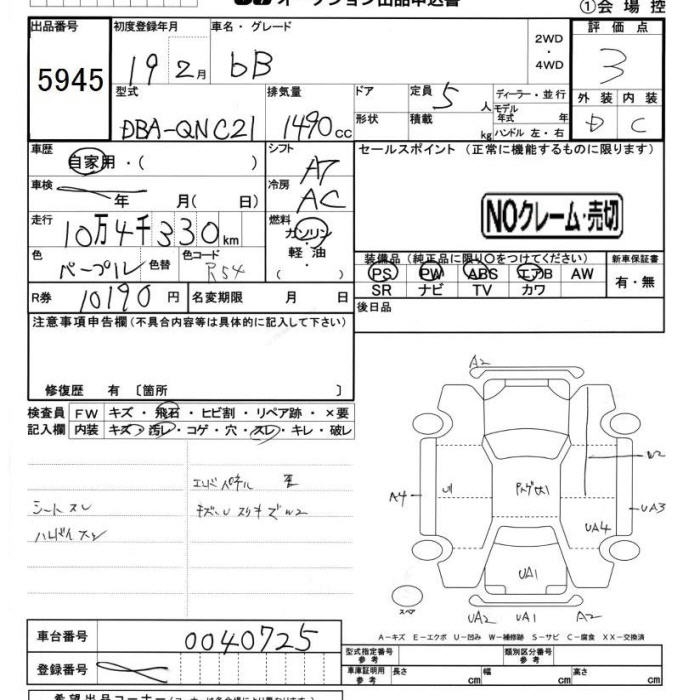 オークション出品申込書
①会場控
出品番号 初度登録年月 車名・グレード 2WD・4WD 評価点
5945 19 2月 bB 3
型式 排気量 ドア 定員 5人 ディーラー・並行 外装 内装
モデル年式 年
DBA-QNC21 1490cc 形状 積載 kg ハンドル 左・右 D C
車歴 自家用・( ) シフト AT セールスポイント (正常に機能するものに限ります)
車検 年 月( 日) 冷房 AC
NOクレーム・売切
走行 10万4千330km 燃料 ガソリン・軽油・( )
色 パープル 色替 色コード R54
装備品 (純正品に限り○をつけてください) 新車保証書
PS PW ABS エアB AW 有・無
SR ナビ TV カワ
R券 10190円 名変期限 月 日
後日品
注意事項申告欄(不具合内容等は具体的に記入して下さい)
修復歴 有 〔箇所 〕
検査員 FW キズ・飛石・ヒビ割・リペア跡・×要
記入欄 内装 キズ・汚レ・コゲ・穴・スレ・キレ・破レ
シートスレ
ハンドルスレ
A2
W2
A4
U1
UA3
UA4
UA1
スペア
UA2 UA1 A2
A-キズ E-エクボ U-凹み W-補修跡 S-サビ C-腐食 XX-交換済
車台番号 0040725
登録番号
型式指定番号 参考 類別区分番号 参考
車庫証明用 参考 長さ cm 幅 cm 高さ cm
希望出品コーナー